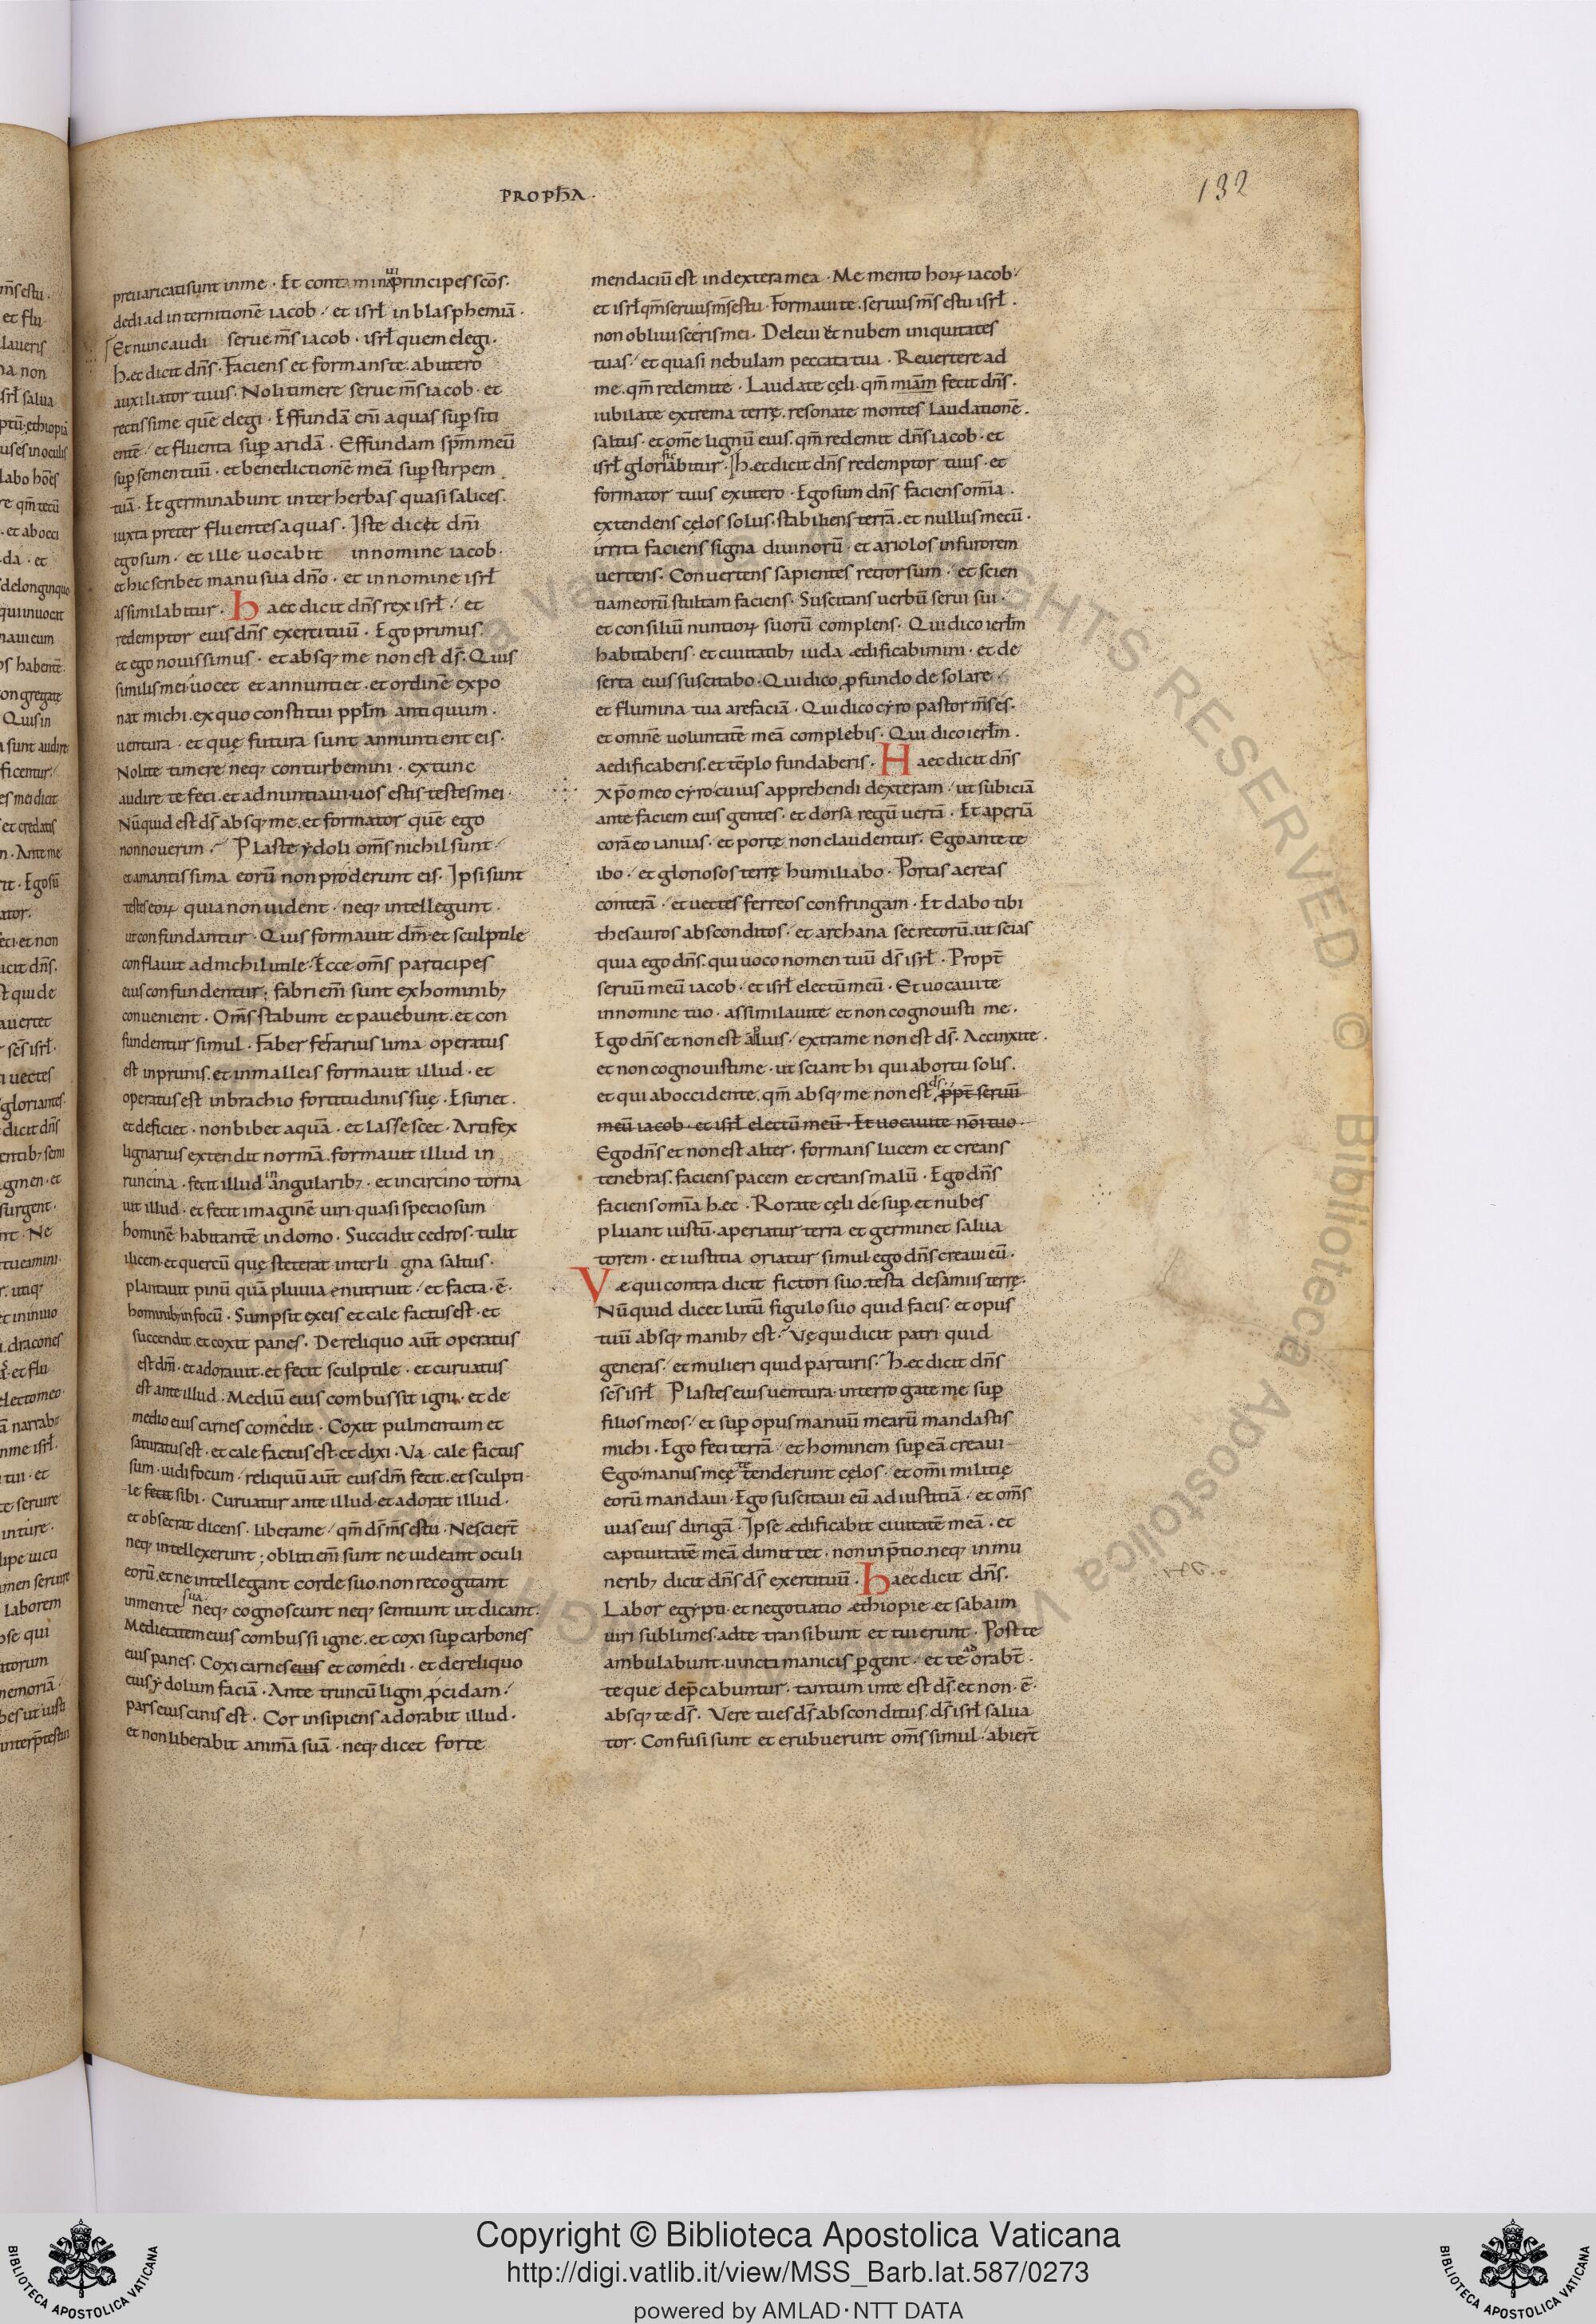 PROPHA·
132
preuaricati sunt in me · Et contaminaui principes scōs·
dedi ad internitionē iacob · et isrł in blasphemiā ·
Et nunc audi serue m̄s iacob · isrł quem elegi ·
hęc dicit dn̄s · Faciens et formans te · ab utero
auxiliator tuus · Noli timere serue m̄s iacob · et
rectissime quē elegi · Effundā eni͞ aquas sup̱ siti
entē · et fluenta sup̱ aridā · Effundam sp̄m meū
sup̱ semen tuū · et benedictionē meā sup̱ stirpem
tuā · Et germinabunt inter herbas quasi salices ·
iuxta preter fluentes aquas · Iste dicet dn̄i
ego sum · et ille uocabit in nomine iacob ·
et hic scribet manu sua dn̄o · et in nomine isrł
assimilabitur · haec dicit dn̄s rex isrł · et
redemptor eius dn̄s exercituū · Ego primus
et ego nouissimus · et absq; me non est ds̄ · Quis
similis mei uocet et annuntiet · et ordinē expo
nat michi · ex quo constitui pplm̄ antiquum ·
uentura · et quę futura sunt annuntient eis ·
Nolite timere neq; conturbemini · ex tunc
audire te feci · et adnuntiaui · uos estis testes mei ·
Nūquid est ds̄ absq; me · et formator quē ego
non nouerim · Plastę ydoli om̄s nichil sunt
et amantissima eorū non proderunt eis · Ipsi sunt
testes eoꝝ quia non uident · neq; intellegunt ·
ut confundantur · Quis formauit dm̄ · et sculptile
conflauit ad nichil utile · Ecce om̄s participes
eius confundentur · fabri eni͞ sunt ex hominib;
conuenient · Om̄s stabunt et pauebunt · et con
fundentur simul · Faber ferrarius lima operatus
est in prunis · et in malleis formauit illud · et
operatus est in brachio fortitudinis suę · Esuriet ·
et deficiet · non bibet aquā · et lassescet · Artifex
lignarius extendit normā · formauit illud in
runcina · fecit illud in angularib; · et in circino torna
uit illud · et fecit imaginē uiri quasi speciosum
hominē habitantē in domo · Succidit cedros · tulit
ilicem · et quercū quę steterat inter li gna saltus ·
plantauit pinū quā pluuia enutriuit · et facta · ē ·
hominib; in focū · Sumpsit ex eis et cale factus est · et
succendit · et coxit panes · De reliquo aut̄ operatus
est dm̄ · et adorauit · et fecit sculptile · et curuatus
est ante illud · Mediū eius combussit igni · et de
medio eius carnes comedit · Coxit pulmentum et
saturatus est · et cale factus est · et dixi · Va · cale factus
sum · uidi focum · reliquū aut̄ eius dm̄ fecit · et sculpti-
le fecit sibi · Curuatur ante illud · et adorat illud ·
et obsecrat dicens · libera me · qm̄ ds̄ m̄s es tu · Nescier̄t
neq; intellexerunt · obliti eni͞ sunt ne uideant oculi
eorū · et ne intellegant corde suo · non recogitant
in mente sua neq; cognoscunt neq; sentiunt ut dicant ·
Medietatem eius combussi igne · et coxi sup̱ carbones
eius panes · Coxi carnes eius et comedi · et de reliquo
eius ydolum faciā · Ante truncū ligni p̱cidam ·
pars eius cinis est · Cor insipiens adorabit illud ·
et non liberabit animā suā · neq; dicet forte
mendaciū est in dextera mea · Memento hoꝝ iacob ·
et isrł qm̄ seruus m̄s es tu · Formaui te · seruus m̄s es tu isrł ·
non obliuisceris mei · Deleui ut nubem iniquitates
tuas · et quasi nebulam peccata tua · Reuertere ad
me · qm̄ redemi te · Laudate cęli · qm̄ miām fecit dn̄s ·
iubilate extrema terrę · resonate montes laudationē ·
saltus · et om̄e lignū eius · qm̄ redemit dn̄s iacob · et
isrł gloriabitur · hęc dicit dn̄s redemptor tuus · et
formator tuus ex utero · Ego sum dn̄s faciens om̄ia ·
extendens cęlos solus · stabiliens terrā · et nullus mecū ·
irrita faciens signa diuinorū · et ariolos in furorem
uertens · Conuertens sapientes retrorsum · et scien
tiam eorū stultam faciens · Suscitans uerbū serui sui ·
et consiliū nuntioꝝ suorū complens · Qui dico ierłm
habitaberis · et ciuitatib; iuda ędificabimini · et de
serta eius suscitabo · Qui dico p̱fundo desolare ·
et flumina tua arefaciā · Qui dico cyro pastor m̄s es ·
et omnē uoluntatē meā complebis · Qui dico ierłm ·
aedificaberis · et tēplo fundaberis · Haec dicit dn̄s
xp̄o meo cyro cuius apprehendi dexteram · ut subiciā
ante faciem eius gentes · et dorsa regū uertā · Et aperiā
corā eo ianuas · et portę non claudentur · Ego ante te
ibo · et gloriosos terrę humiliabo · Portas aereas
conterā · et uectes ferreos confringam · Et dabo tibi
thesauros absconditos · et archana secretorū · ut scias
quia ego dn̄s · qui uoco nomen tuū ds̄ isrł · Propt̄
seruū meū iacob · et isrł electū meū · Et uocaui te
in nomine tuo · assimilaui te et non cognouisti me ·
Ego dn̄s et non est alius · extra me non est ds̄ · Accinxi te ·
et non cognouisti me · ut sciant hi qui ab ortu solis ·
et qui ab occidente · qm̄ absq; me non est ds̄ · p̱pt̄ seruū
meū iacob · et isrł electū meū · Et uocaui te nōi tuo ·
Ego dn̄s et non est alter · formans lucem et creans
tenebras · faciens pacem et creans malū · Ego dn̄s
faciens om̄ia hęc · Rorate cęli desup̱ · et nubes
pluant iustū · aperiatur terra et germinet salua
torem · et iustitia oriatur simul · ego dn̄s creaui eū ·
Vę qui contra dicit fictori suo · testa de samiis terrę ·
Nūquid dicet lutū figulo suo quid facis · et opus
tuū absq; manib; est · Vę qui dicit patri quid
generas · et mulieri quid parturis · hęc dicit dn̄s
sc̄s isrł Plastes eius uentura interrogate me sup̱
filios meos · et sup̱ opus manuū mearū mandastis
michi · Ego feci terrā · et hominem sup̱ eā creaui
Ego · manus meę tetenderunt cęlos · et om̄i militię
eorū mandaui · Ego suscitaui eū ad iustitiā · et om̄s
uias eius dirigā · Ipse ędificabit ciuitatē meā · et
captiuitatē meā dimittet · non in p̄tio · neq; in mu
nerib; dicit dn̄s ds̄ exercituū · haec dicit dn̄s ·
Labor egypti · et negotiatio ęthiopię · et sabaim
uiri sublimes · ad te transibunt et tui erunt · Post te
ambulabunt · uincti manicis p̱gent · et te adorabt̄ ·
te que dep̄cabuntur · tantum in te est ds̄ · et non · ē ·
absq; te ds̄ · Vere tu es ds̄ absconditus · ds̄ isrł salua
tor · Confusi sunt et erubuerunt om̄s simul · abier̄t
Copyright © Biblioteca Apostolica Vaticana
http://digi.vatlib.it/view/MSS_Barb.lat.587/0273
powered by AMLAD·NTT DATA